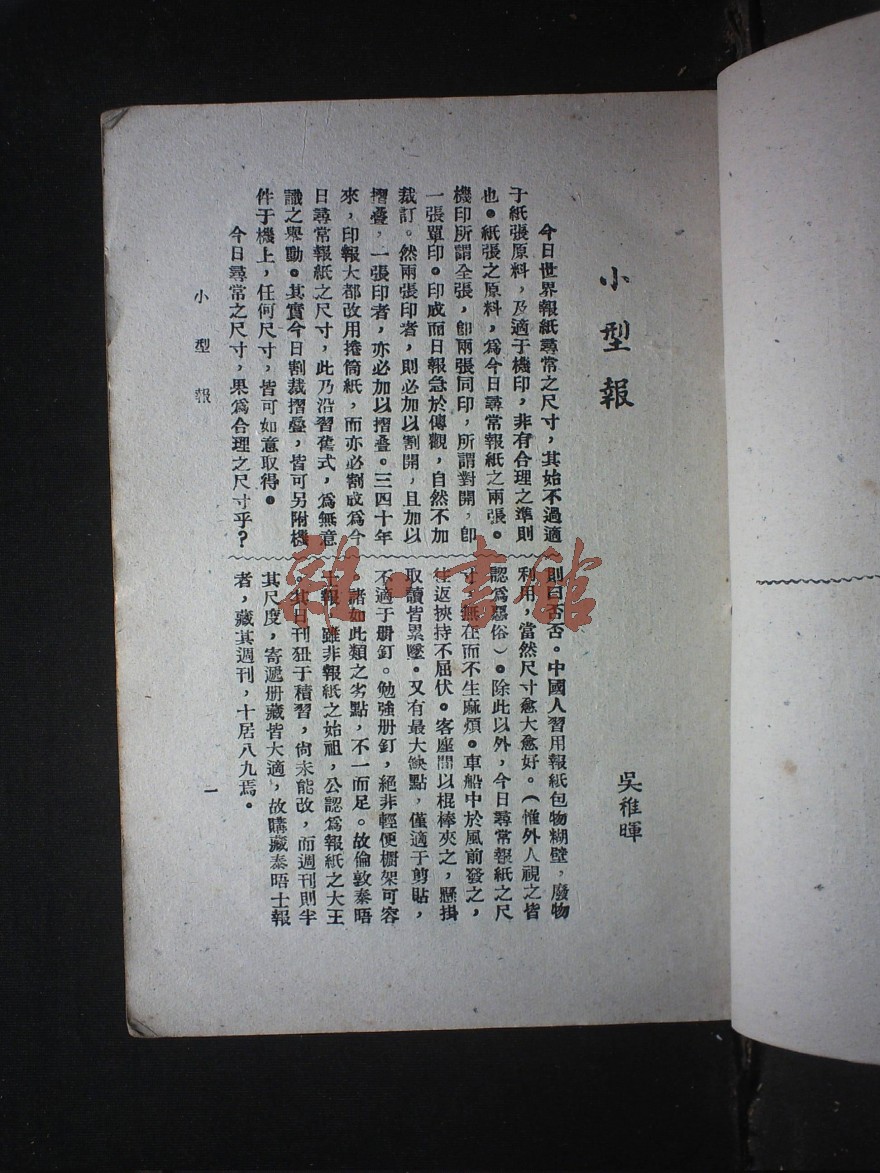 小型報
吳稚暉
今日世界報紙尋常之尺寸，其始不過適
于紙張原料，及適于機印，非有合理之準則
也。紙張之原料，爲今日尋常報紙之兩張。
機印所謂全張，卽兩張同印，所謂對開，卽
一張單印。印成而日報急於傳觀，自然不加
裁訂。然兩張印者，則必加以割開，且加以
摺疊，一張印者，亦必加以摺疊。三四十年
來，印報大都改用捲筒紙，而亦必割成爲今
日尋常報紙之尺寸，此乃沿習舊式，爲無意
識之舉動。其實今日割裁摺疊，皆可另附機
件于機上，任何尺寸，皆可如意取得。
今日尋常之尺寸，果爲合理之尺寸乎？
則曰否否。中國人習用報紙包物糊壁，廢物
利用，當然尺寸愈大愈好。（惟外人視之皆
認爲惡俗）。除此以外，今日尋常報紙之尺
寸，無在而不生麻煩。車船中於風前發之，
往返挾持不屈伏。客座間以棍棒夾之，懸掛
取讀皆累墜。又有最大缺點，僅適于剪貼，
不適于册釘。勉強册釘，絕非輕便櫥架可容
諸如此類之劣點，不一而足。故倫敦泰晤
士報，雖非報紙之始祖，公認爲報紙之大王
。其日刊狃于積習，尙未能改，而週刊則半
其尺度，寄遞册藏皆大適，故購藏泰晤士報
者，藏其週刊，十居八九焉。
小型報
一
雜·書館